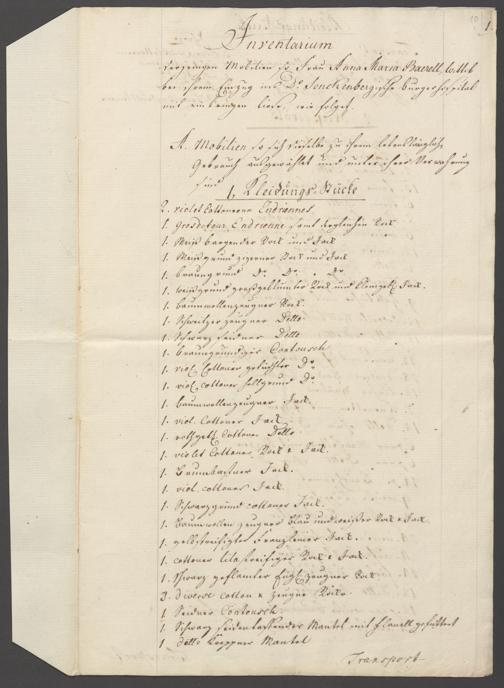 1.
Inventarium
derjenigen Mobilien so Frau Anna Maria
bei ihrem Einzug ins Dr. Senckenbergische Burgerhospital
mit einbringen liese, wie folget.
A. Mobilien so sich dieselbe zu ihrem lebenslänglich.
Gebrauch ausgewählet und unter ihrer Verwahrung
sind
1, Kleidungs Stücke
2. violet Cottonene Endriennes
1. grosdotour Endrienne samt dergleichen Rock
1. Rock und Jack
1. Rock und Jack
1. braungrund do do do
1. weisgrund grosgeblumter Rock und Jack.
1. baumwollenzeugner Rock.
1. Schweitzer zeugner Detto
1. Schwarz seidner Detto
1. braungrundiger Contousch
1. viol. Cottoner do
1. viol. cottoner hellgrund do
1. baumwollenzeugner Jack.
1. viol. Cottoner Jack
1. rothgelb Cottoner Detto
1. violet Cottoner Rock & Jack.
1. Jack.
1. viol. cottoner Jack
1. Schwarzgrund cottoner Jack.
1. Baumwollen zeugner blau und weisser Rock & Jack.
1. gelbstreifigter Jack.
1. cottoner lilastreifiger Rock & Jack.
1. schwarz geflamter Engl. zeugner Rock
3. diverse cotton & zeugne Röcke
1 Seidner Contousch
1 Schwarz seidentaffender Mantel mit Flanell gefüttert
1 detto Mantel
Transport